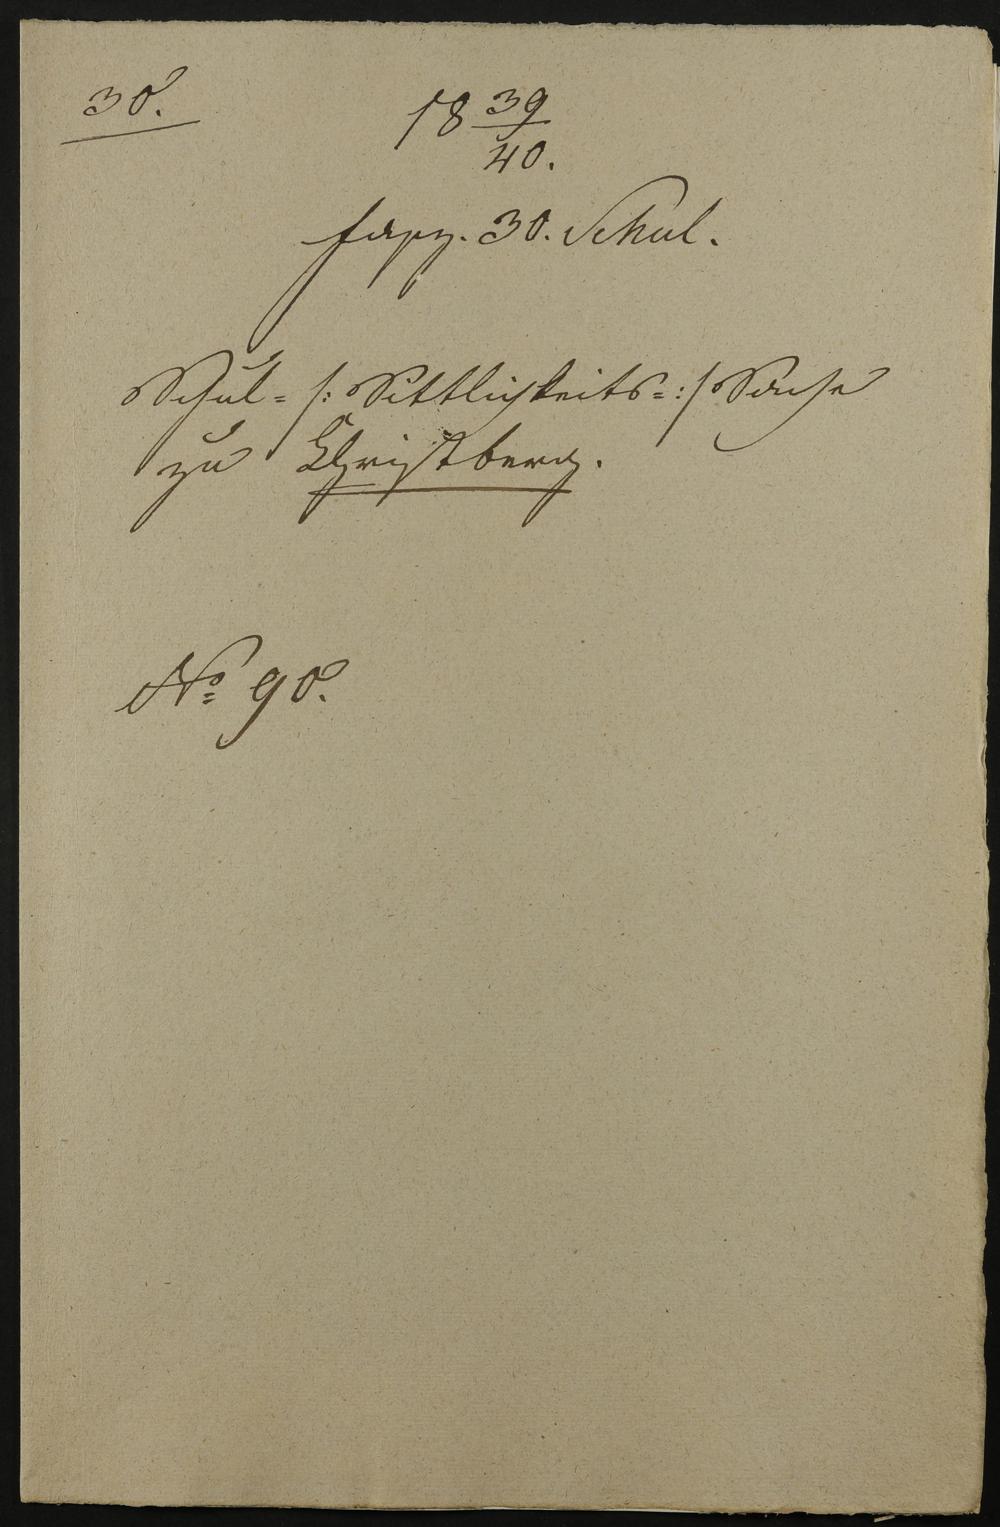 30.
18 39/40.
Fasz. 30. Schul.
Schul- /: Sittlichkeits-:/ Sache
zu Christberg.
No 90.